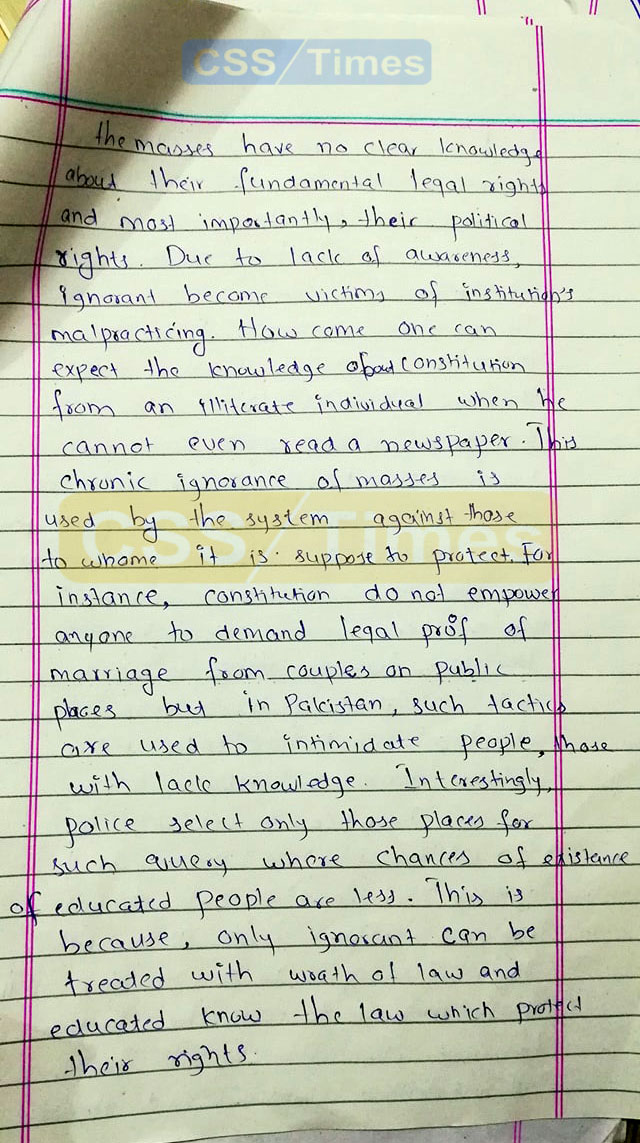 CSS/Times
the masses have no clear knowledge
about their fundamental legal rights
and most importantly, their political
rights. Due to lack of awareness,
ignorant become victims of institution's
malpracticing. How come one can
expect the knowledge about constitution
from an illiterate individual when he
cannot even read a newspaper. This
chronic ignorance of masses is
used by the system against those
to whome it is suppose to protect. For
instance, constitution do not empower
anyone to demand legal prof of
marriage from couples on public
places but in Pakistan, such tactics
are used to intimidate people, those
with lack knowledge. Interestingly,
police select only those places for
such query where chances of existance
of educated people are less. This is
because, only ignorant can be
treated with wrath of law and
educated know the law which protect
their rights.
CSS/Times